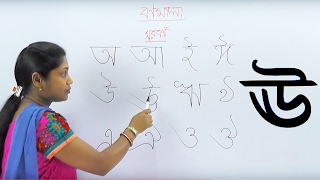 বর্ণমালা
স্বরবর্ণ
অ আ ই ঈ
উ ঊ ঋ এ
ঐ ও ঔ
ঊ